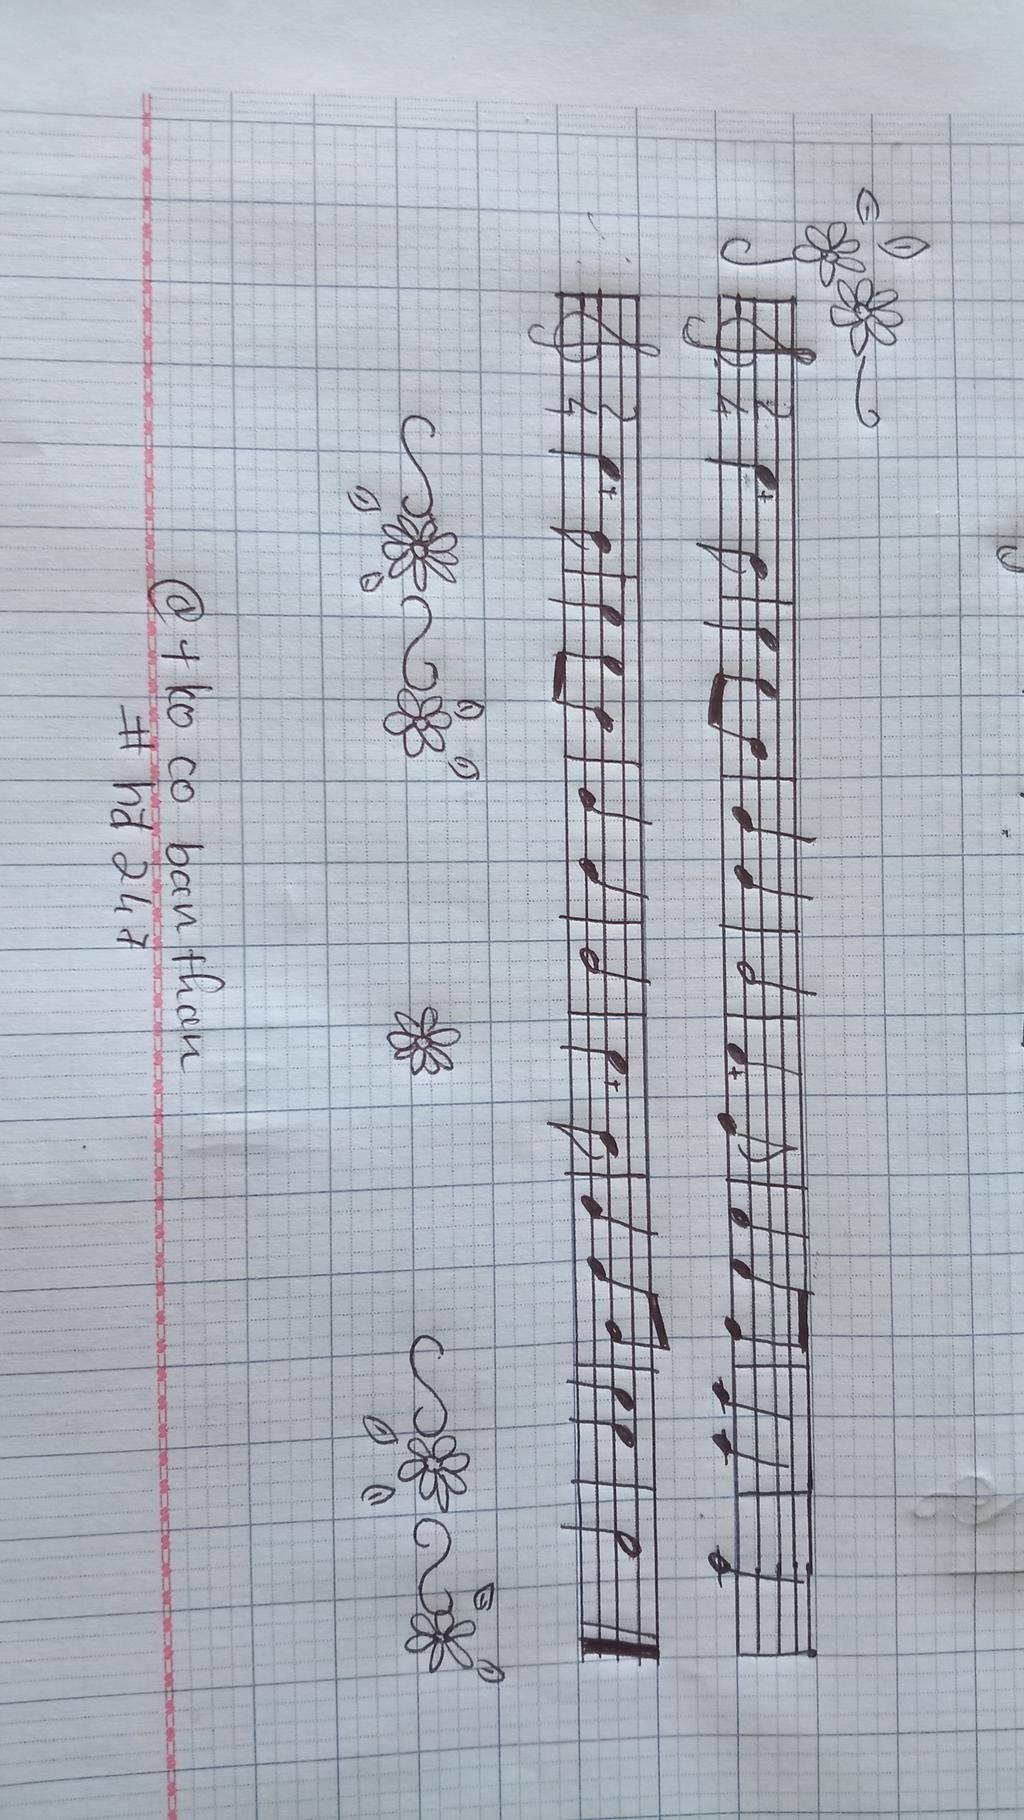 2
4
2
4
@ + ko co ban than
# hd 247